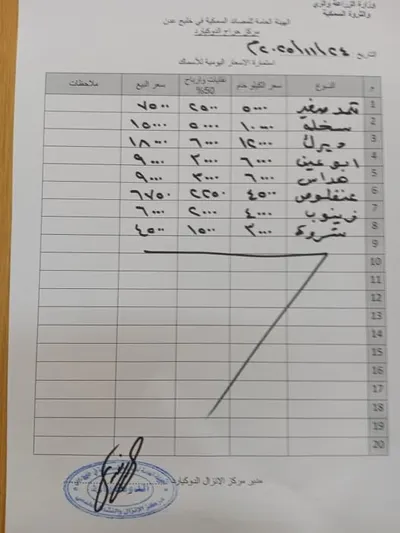 وزارة الزراعة والري
والثروة السمكية
الهيئة العامة للمصائد السمكية في خليج عدن
مركز حراج الدوكيارد
التاريخ ٢٠٢٥/١١/٢٤م
استمارة الاسعار اليومية للأسماك
م النوع سعر الكيلو خام نفقات وارباح 50% سعر البيع ملاحظات
1 ثمد صغير ٥٠٠٠ ٢٥٠٠ ٧٥٠٠
2 سخلة ١٠٠٠٠ ٥٠٠٠ ١٥٠٠٠
3 ديرك ١٢٠٠٠ ٦٠٠٠ ١٨٠٠٠
4 ابو عين ٦٠٠٠ ٣٠٠٠ ٩٠٠٠
5 هداس ٦٠٠٠ ٣٠٠٠ ٩٠٠٠
6 عنفلوص ٤٥٠٠ ٢٢٥٠ ٦٧٥٠
7 زينوب ٤٠٠٠ ٢٠٠٠ ٦٠٠٠
8 شروة ٣٠٠٠ ١٥٠٠ ٤٥٠٠
9
10
11
12
13
14
15
16
17
18
19
20
مدير مركز الانزال الدوكيارد